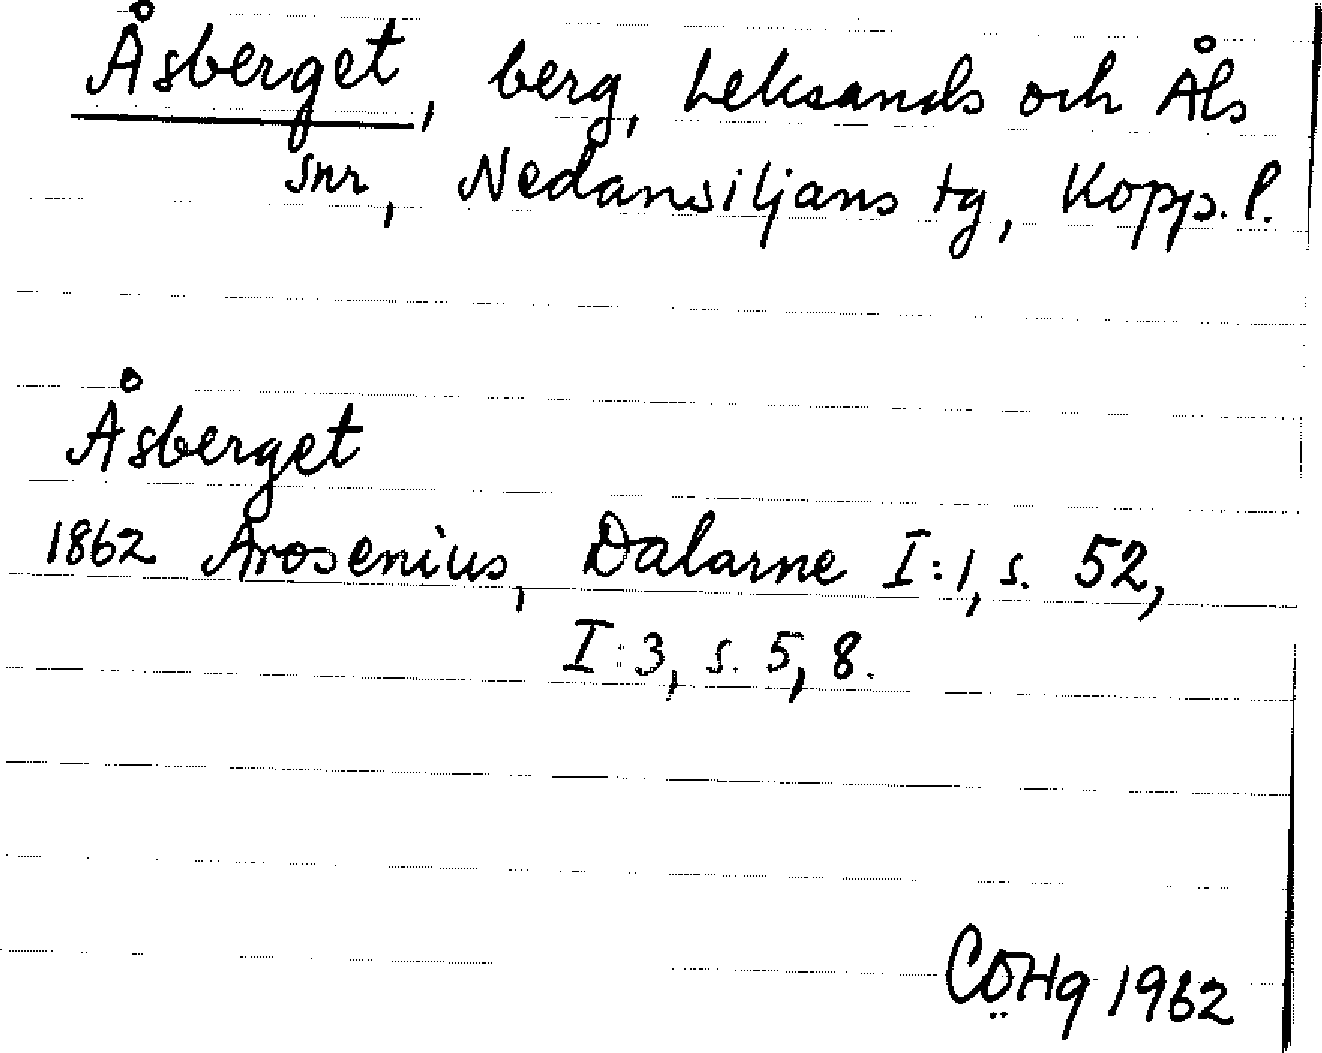 Åsberget, berg, Leksands och Åls
snr, Nedansiljans tg, Kopp. l.
Åsberget
1862 Arosenius, Dalarne I:1, s. 52,
I:3, s. 5, 8.
CÖHg 1962